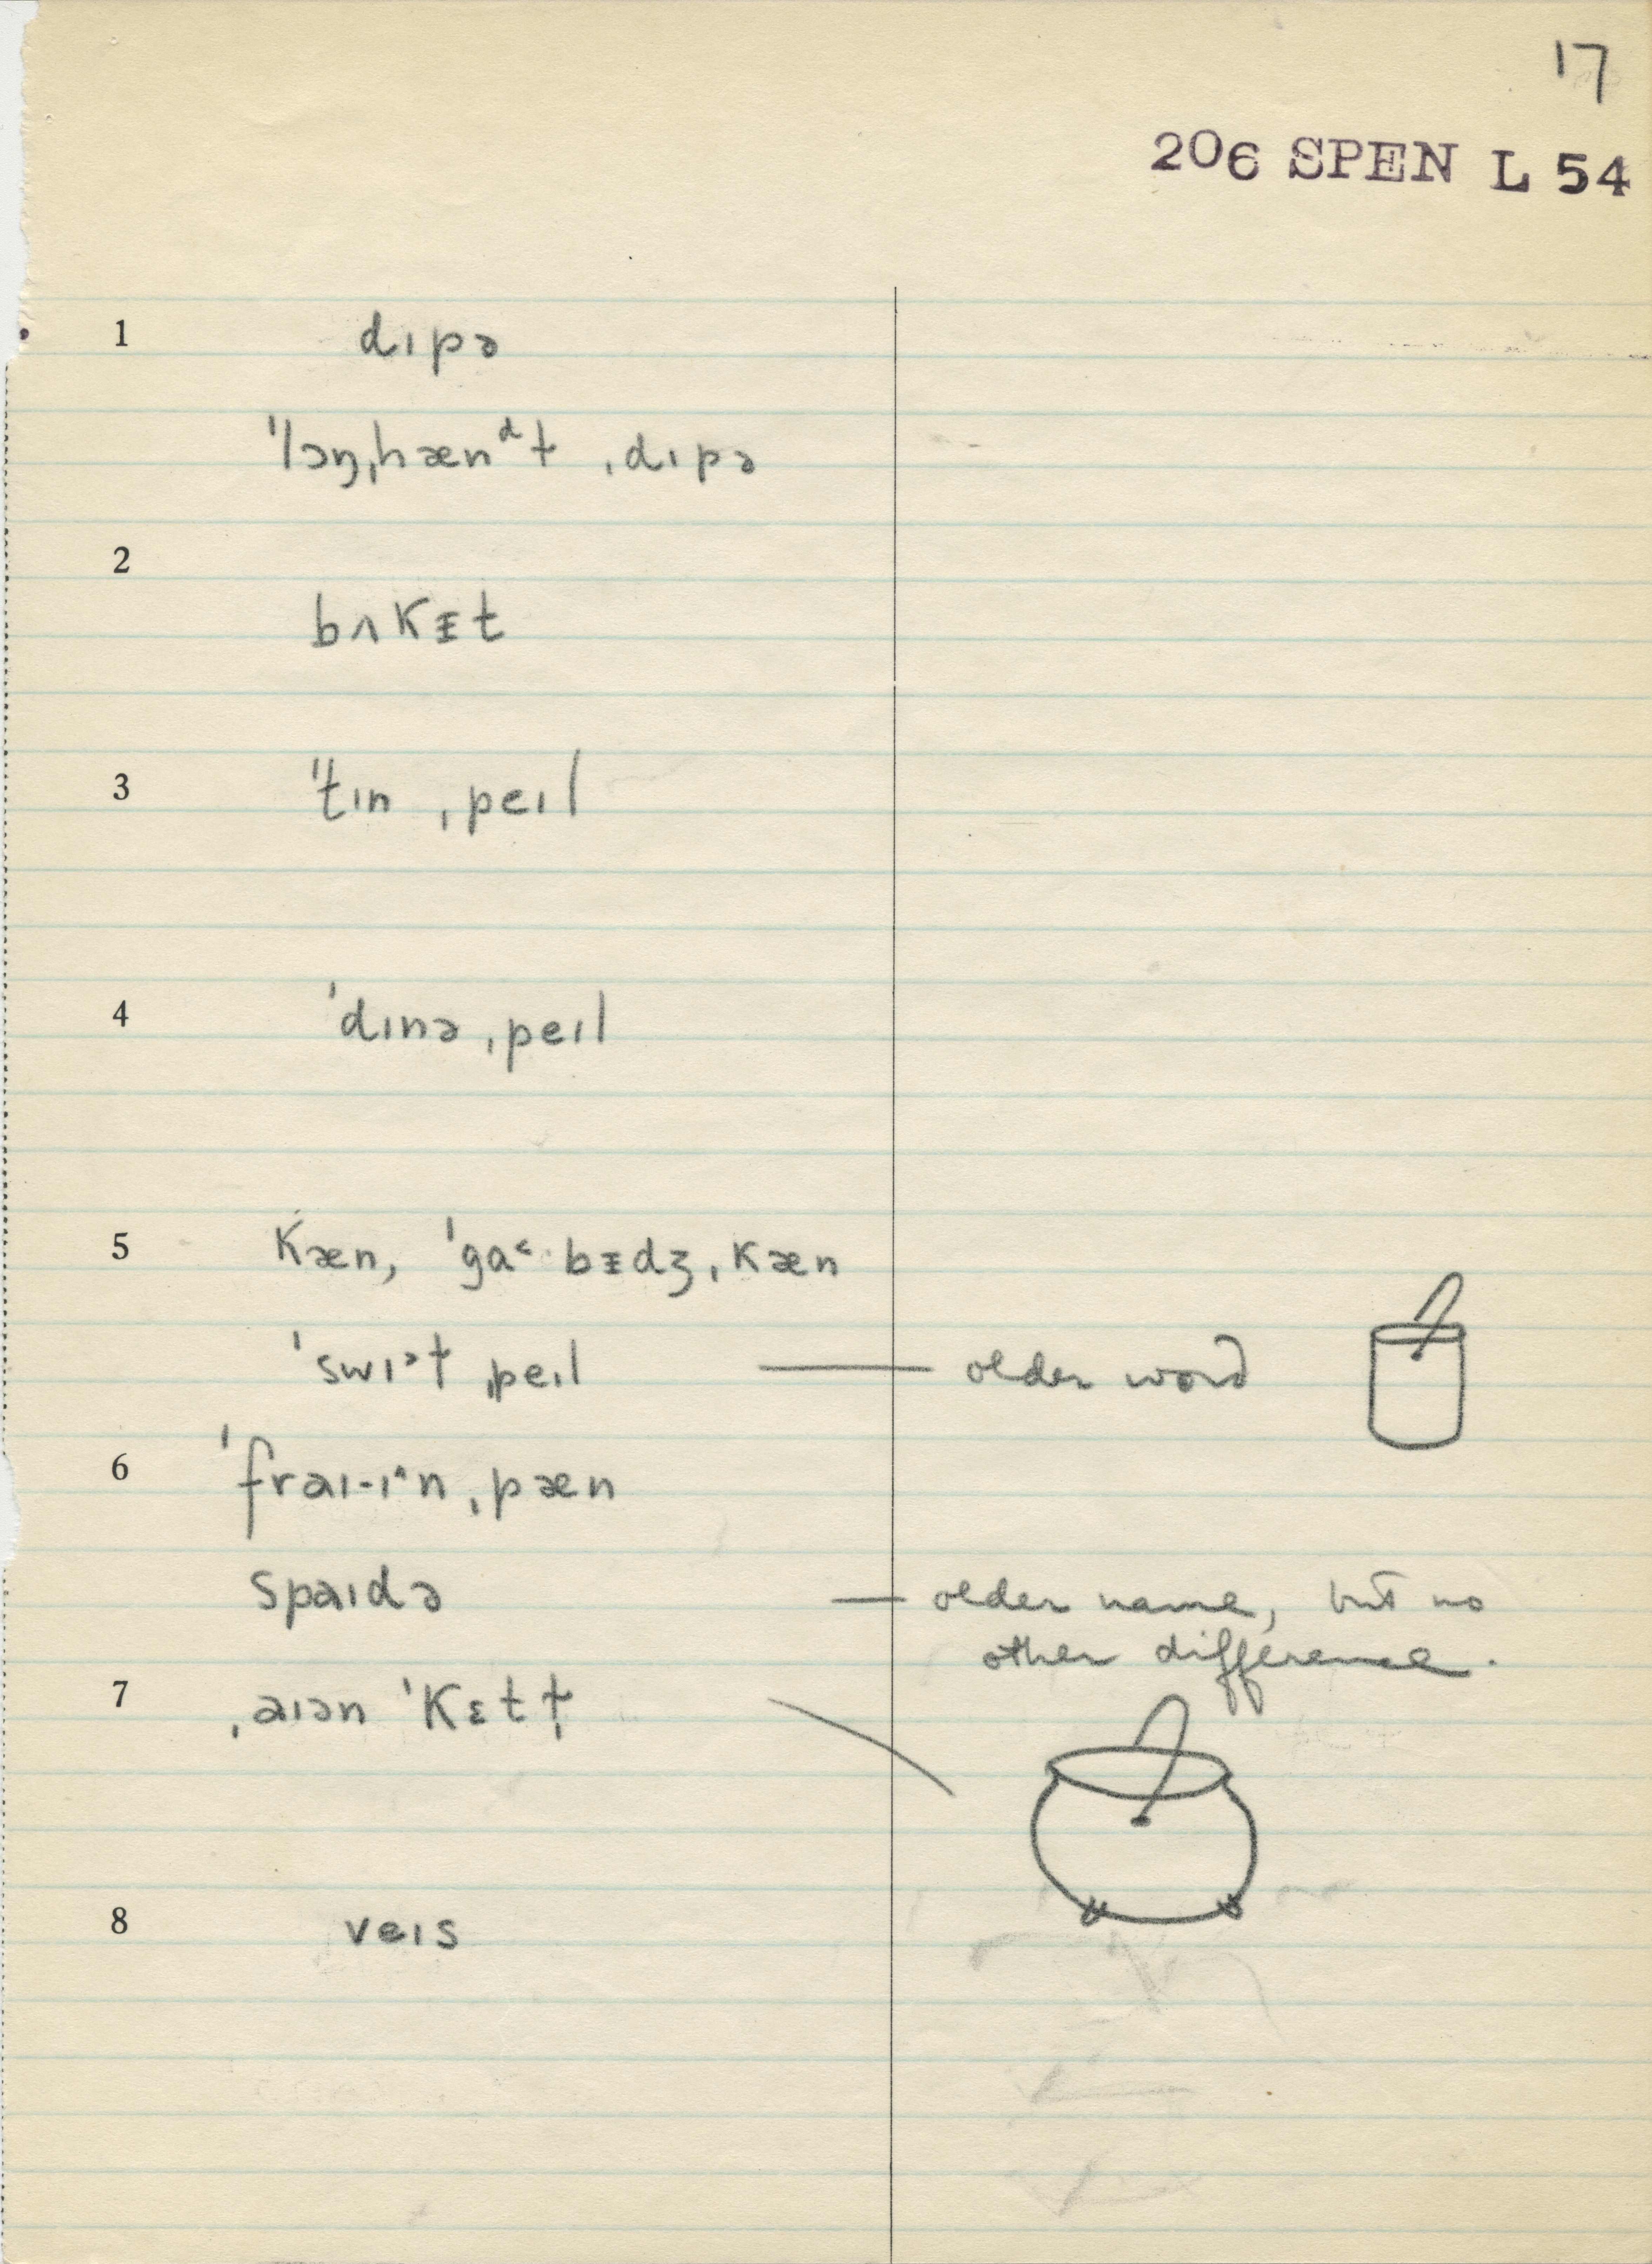 17
206 SPEN L 54
1 dɪpə
ˈlɔŋˌhænᵈɫ ˌdɪpə
2
bʌkᵻt
3 ˈˈtɪn ˌpeɪl
4 ˈdɪnə ˌpeɪl
5 kæn, ˈga˂·bᵻdʒˌkæn
ˈswɪᵊɫ ˌpeɪl — older word
6 ˈfraɪ-ɪ˄n ˌpæn
spaɪdə — older name, but no
other difference.
7 ˌaɪən ˈkɛtɫ̩
8 veɪs